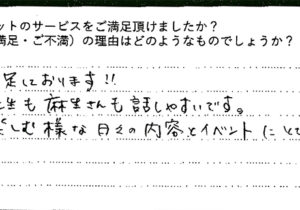 ットのサービスをご満足頂けましたか？
満足・ご不満）の理由はどのようなものでしょうか？
足しております!!
生も麻生さんも話しやすいです。
しむ様な日々の内容とイベントにとて